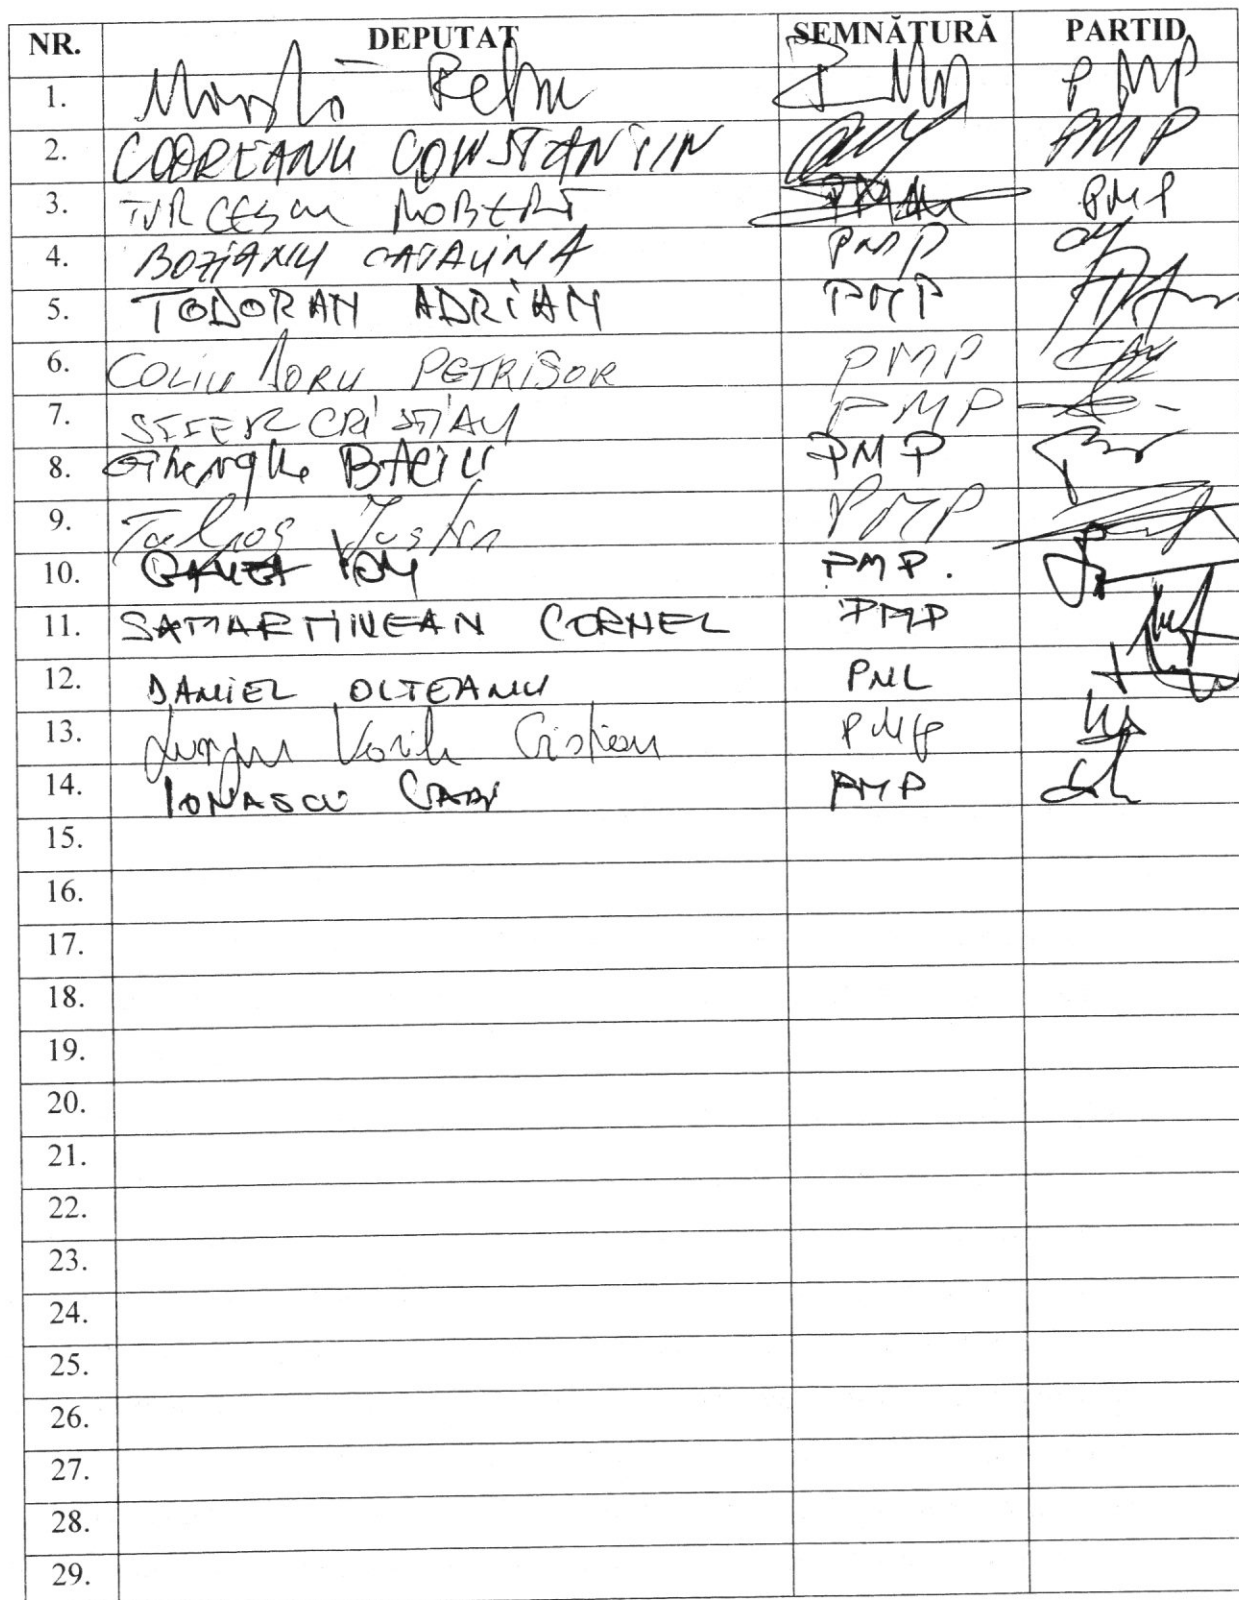 NR. DEPUTAT SEMNĂTURĂ PARTID
1. PMP
2. CODREANU CONSTANTIN PMP
3. TURCESCU ROBERT PMP
4. BOZIANU CATALINA PMP
5. TODORAN ADRIAN PMP
6. COLIU DORU PETRISOR PMP
7. SEFER CRISTIAN PMP
8. Gheorghe BACIU PMP
9. Talpos Iustin PMP
10. ION PMP.
11. SAMARTINEAN CORNEL PMP
12. DANIEL OLTEANU PNL
13. Lungu Vasile Cristian PMP
14. IONASCU GABI PMP
15.
16.
17.
18.
19.
20.
21.
22.
23.
24.
25.
26.
27.
28.
29.